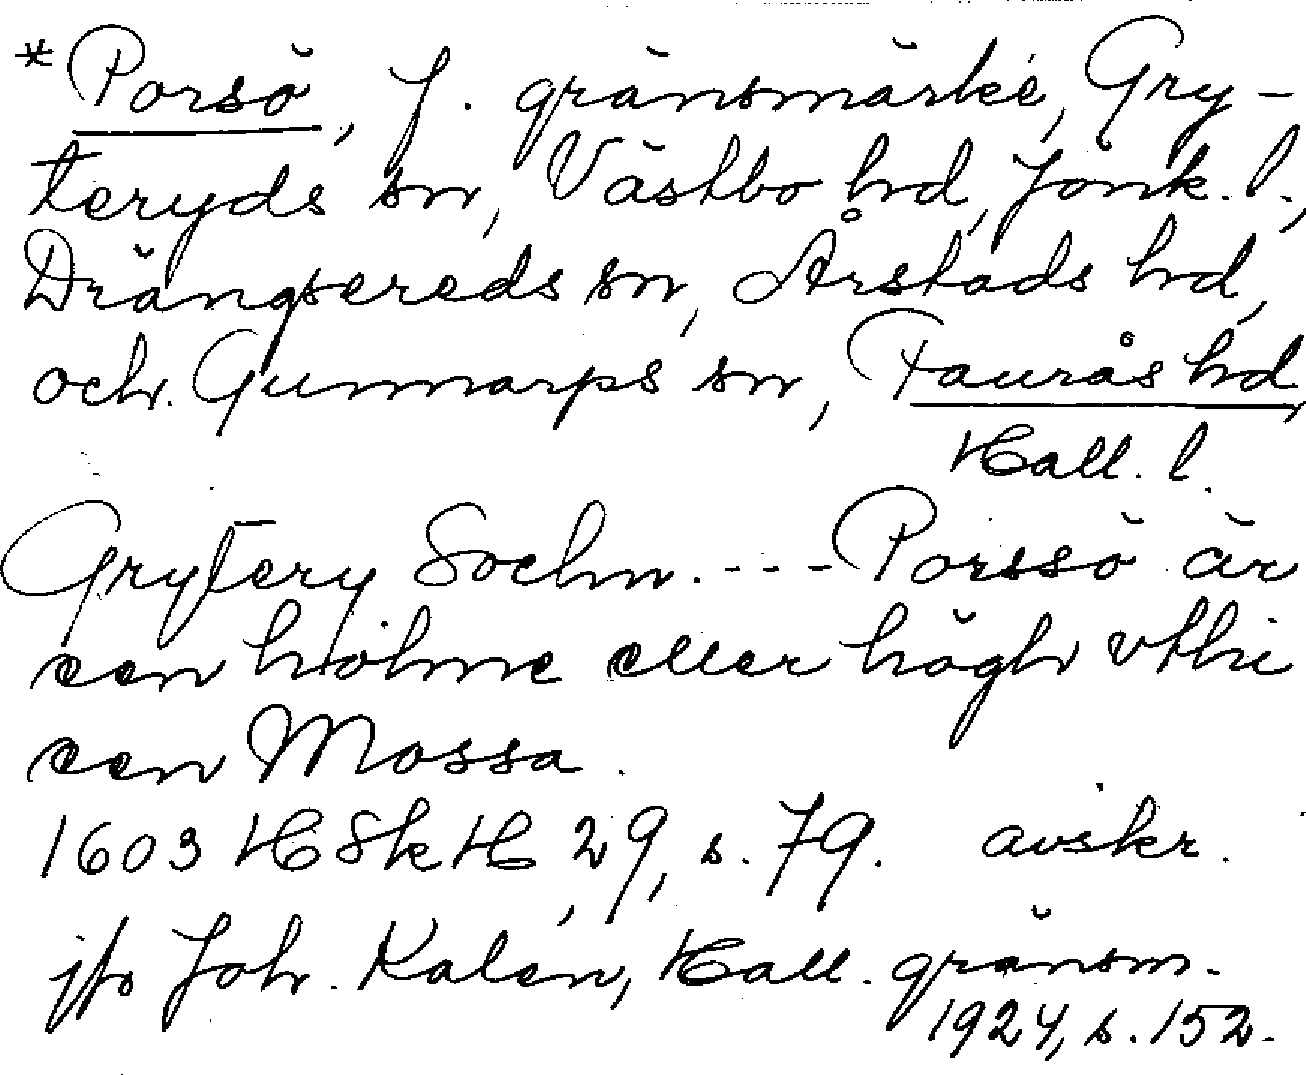 *Porsö, f. gränsmärke, Gry-
teryds sn, Västbo hd, Jönk. l.,
Drängsereds sn, Årstads hd,
och Gunnarps sn, Faurås hd,
Hall. l.
Grytery Sochn. --- Porssö är
een holme eller högh vthi
een Mossa.
1603 HSkH 29, s. 79. avskr.
jfr Joh. Kalén, Hall. gränsm.
1924, s. 152.